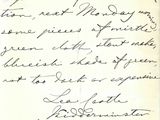 tion, next Monday
some pieces of mirtle
green cloth, stout make
blueish shade of green,
not too dark or expensive
Lea Castle
Kidderminster